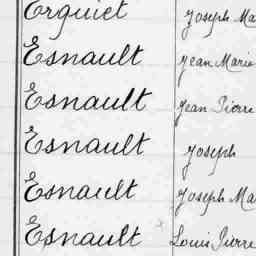 Erguiet Joseph Ma
Esnault Jean Marie
Esnault Jean Pierre
Esnault Joseph
Esnault Joseph Ma
Esnault Louis Pierre